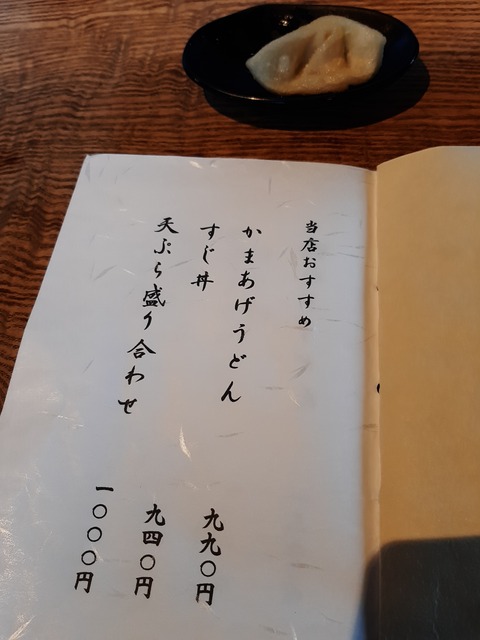 当店おすすめ
かまあげうどん 九九〇円
すじ丼 九四〇円
天ぷら盛り合わせ 一〇〇〇円